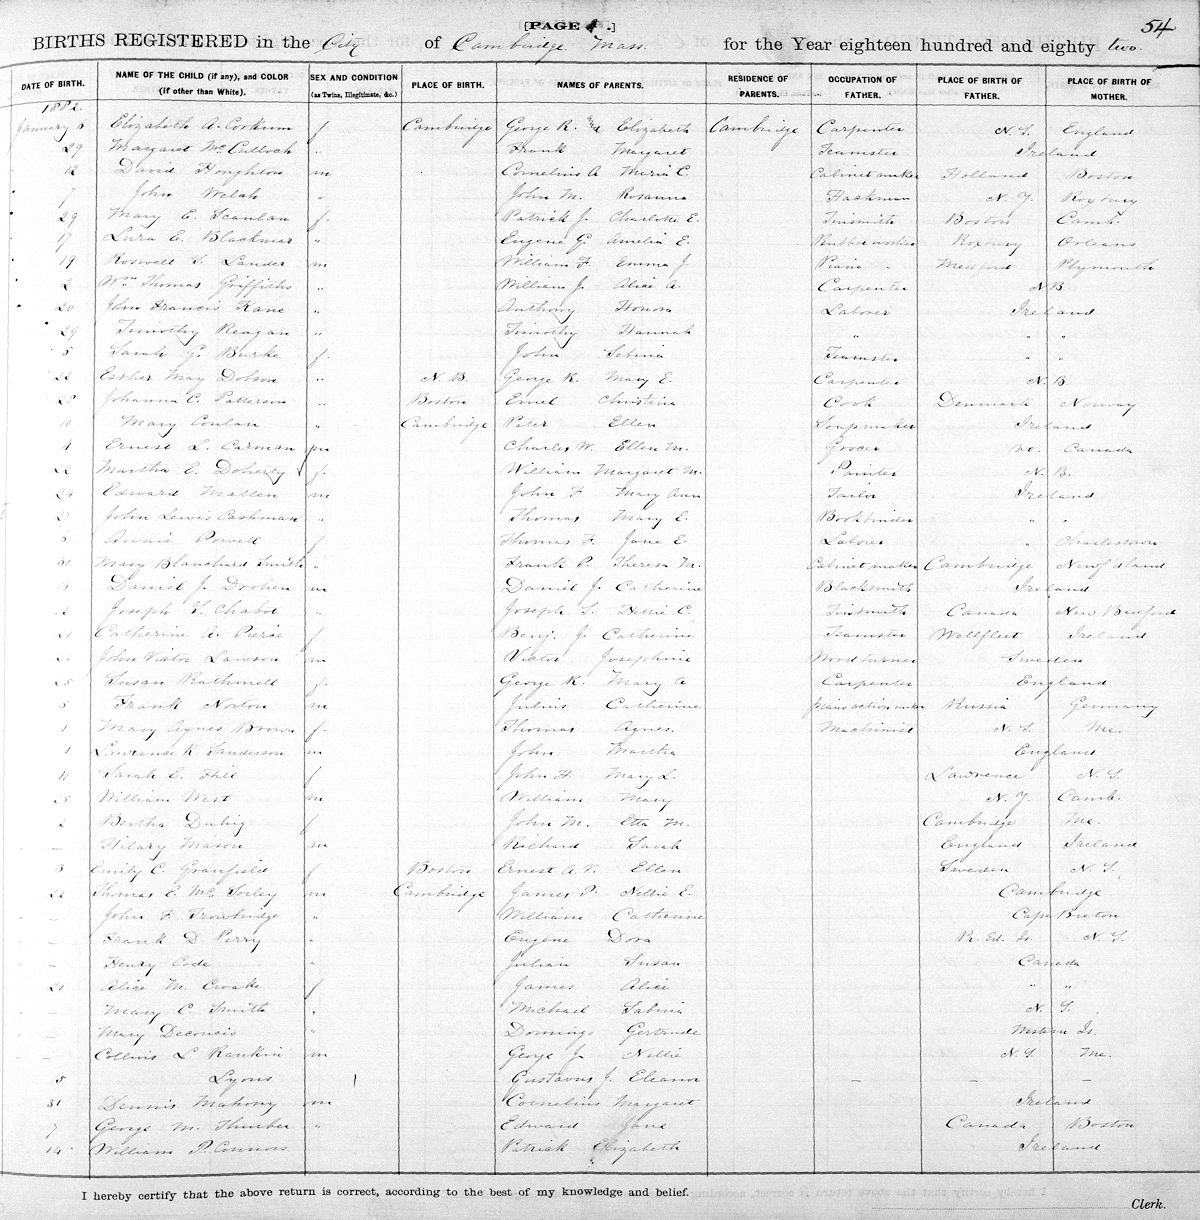 [PAGE 1.] 54
BIRTHS REGISTERED in the City of Cambridge Mass. for the Year eighteen hundred and eighty two.
DATE OF BIRTH. NAME OF THE CHILD (if any), and COLOR (if other than White). SEX AND CONDITION (as Twins, Illegitimate, &c.) PLACE OF BIRTH. NAMES OF PARENTS. RESIDENCE OF PARENTS. OCCUPATION OF FATHER. PLACE OF BIRTH OF FATHER. PLACE OF BIRTH OF MOTHER.
1882.
January 8 Elizabeth A. Cookum f Cambridge George R. Elizabeth Cambridge Carpenter N.S. England
29 Margaret McCulloch " Frank Margaret Teamster Ireland
12 David Houghton m Cornelius A Maria C. Cabinet maker Holland Boston
7 John Welsh " John M. Rosanna Hackman N.Y. Roxbury
29 Mary E. Scanlan f. Patrick J. Charlotte E. Tinsmith Boston Camb.
17 Lura E. Blackmar " Eugene G. Amelia E. Rubber worker Roxbury Orleans
19 Roswell S. Lander m William F. Emma J Piano " Medford Plymouth
2 Wm Thomas Griffiths " William J. Alice A. Carpenter N.B.
20 John Francis Kane " Anthony Honora Laborer Ireland
29 Timothy Reagan " Timothy Hannah " " "
5 Sarah G. Burke f. John Sabina Teamster " "
22 Esther May Dobson " N.B. George R. Mary E. Carpenter N.B.
28 Johanna C. Petterson " Boston Emel Christina Cook Denmark Norway
10 Mary Conlan " Cambridge Peter Ellen Soapmaker Ireland
4 Ernest L. Carman m Charles W. Ellen M. Grocer Me. Canada
22 Martha E. Doherty f. William Margaret M. Painter N.B.
24 Edward Mallen m John F Mary Ann Tailor Ireland
27 John Lewis Cashman " Thomas Mary E. Bookbinder " "
Annie Powell f Thomas F. Jane E. Laborer " Charlestown
31 Mary Blanchard Smith " Frank P. Theresa M. Cabinet maker Cambridge Newf'dland
Daniel J. Drohen m Daniel J. Catherine Blacksmith Ireland
Joseph S. Chabot " Joseph S. Nellie C. Tinsmith Canada New Bedford
21 Catherine A. Pierce f Benj. J. Catherine Teamster Wellfleet Ireland
John Victor Lawson m Victor Josephine Wood turner Sweden
25 Susan Rathmell f. George R. Mary A Carpenter England
5 Frank Norton m Julius Catherine Russia Germany
1 Mary Agnes Brown f. Thomas Agnes. Machinist N.S. Me.
1 Lawrence R. Sanderson m John Martha England
11 Sarah E. f John H. Mary L. Lawrence N.S.
25 William West m William Mary N.Y. Camb.
2 Bertha Duhig f John M. Etta M. Cambridge Me.
— Hilary Mason m Richard Sarah England Ireland
3 Emily C. Granfield f Boston Ernest A. V. Ellen Sweden N.S.
22 Thomas E. McSorley m Cambridge James P. Nellie E. Cambridge
— John F. Trowbridge " William Catherine Cape Breton
— Frank D. Perry " Eugene Dora Pr. Ed. Is. N.S.
— Henry Code " Julian Susan Canada
21 Alice M. Croake f James Alice " "
— Mary C. Smith " Michael Sabina N.S.
— Mary Deconcis " Domingo Gertrude Western Is.
— Collins L Rankin m George J. Nellie N.S. Me.
5 Lyons Gustavus J. Eleanor — — —
31 Dennis Mahony m Cornelius Margaret Ireland
7 George M. Thurber " Edward Jane Canada Boston
14 William P. Connors " Patrick Elizabeth Ireland
I hereby certify that the above return is correct, according to the best of my knowledge and belief.
Clerk.